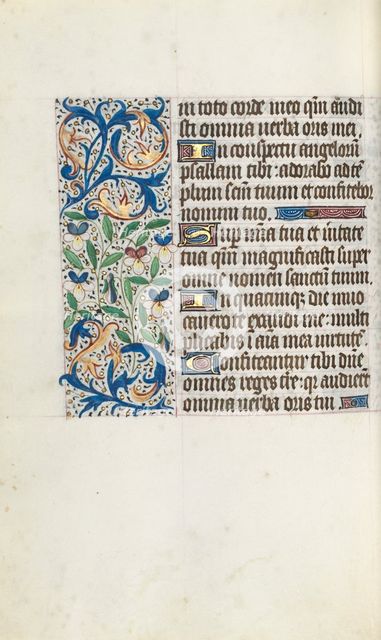 in toto corde meo qm̄ audi
sti omnia uerba oris mei.
In conspectu angelorū
psallam tibi: adorabo ad tē
plum sc̄m tuum et confitebor
nomini tuo.
Sup mīa tua et ueritate
tua qm̄ magnificasti super
omne nomen sanctū tuum.
In quacumq; die inuo
cauero te exaudi me: multi
plicabis i aīa mea uirtutē.
Confiteantur tibi dn̄e
omnes reges tr̄e: qr audierūt
omnia uerba oris tui.